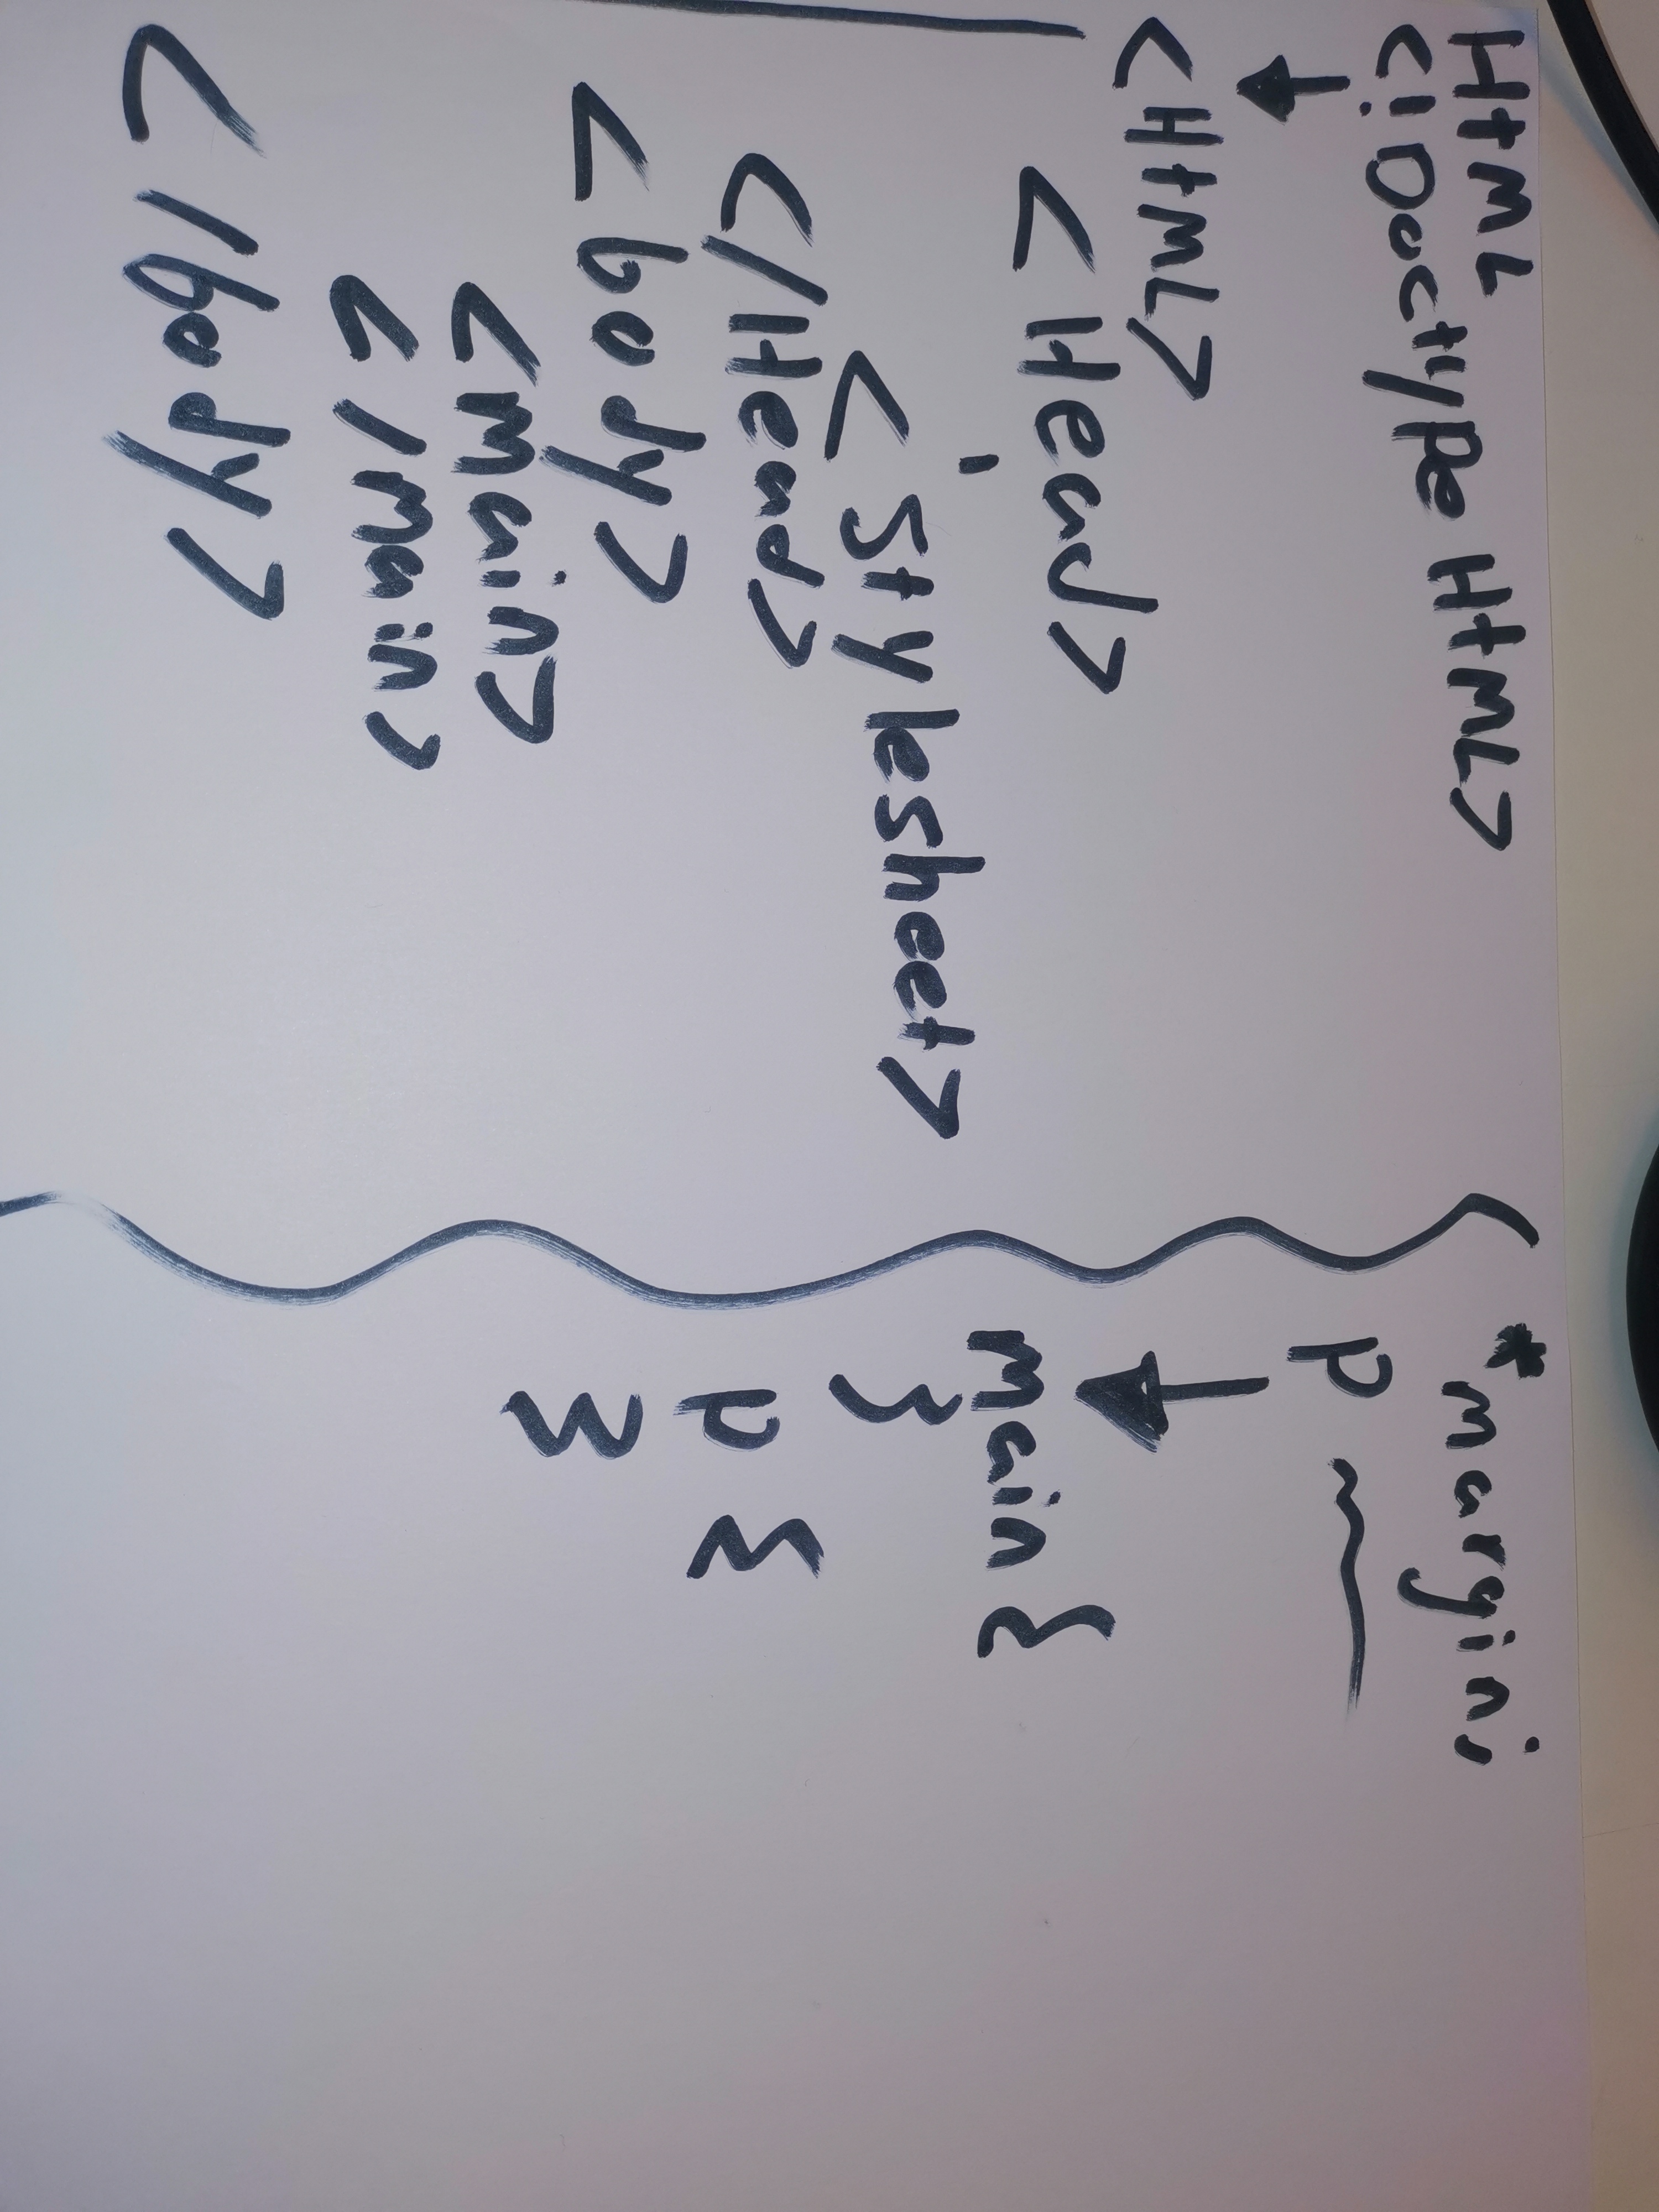 HtmL
<!Doctype HtmL>
<HtmL>
<Head>
<Stylesheet>
</Head>
<body>
<main>
</main>
</body>
*margin;
p
main {
}
p {
}